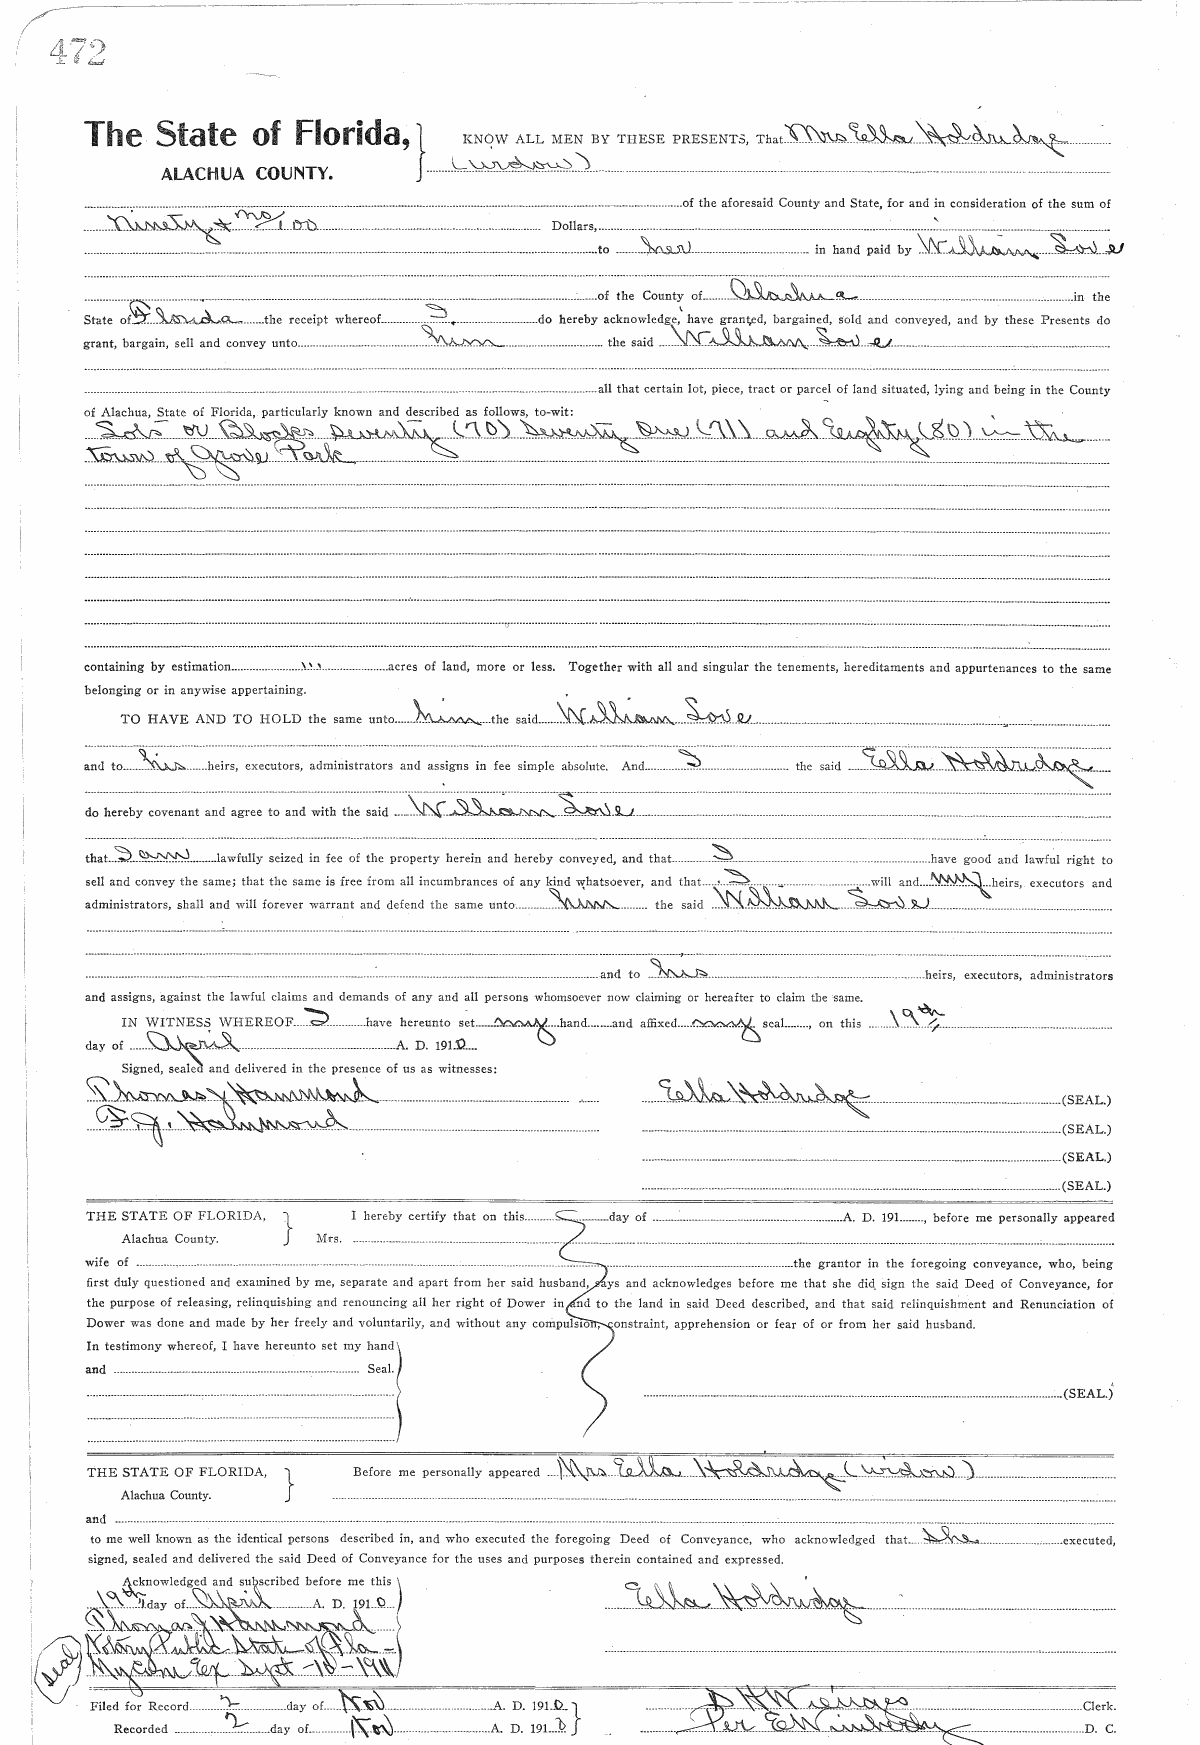 472
The State of Florida, KNOW ALL MEN BY THESE PRESENTS, That Mrs Ella Holdridge
ALACHUA COUNTY. (widow)
of the aforesaid County and State, for and in consideration of the sum of
Ninety & no/100 Dollars,
to her in hand paid by William Love
of the County of Alachua in the
State of Florida the receipt whereof I, do hereby acknowledge, have granted, bargained, sold and conveyed, and by these Presents do
grant, bargain, sell and convey unto him the said William Love
all that certain lot, piece, tract or parcel of land situated, lying and being in the County
of Alachua, State of Florida, particularly known and described as follows, to-wit:
Lots or Blocks Seventy (70) Seventy One (71) and Eighty (80) in the
town of Grove Park
containing by estimation ''' acres of land, more or less. Together with all and singular the tenements, hereditaments and appurtenances to the same
belonging or in anywise appertaining.
TO HAVE AND TO HOLD the same unto him the said William Love
and to his heirs, executors, administrators and assigns in fee simple absolute. And I the said Ella Holdridge
do hereby covenant and agree to and with the said William Love
that I am lawfully seized in fee of the property herein and hereby conveyed, and that I have good and lawful right to
sell and convey the same; that the same is free from all incumbrances of any kind whatsoever, and that I will and my heirs, executors and
administrators, shall and will forever warrant and defend the same unto him the said William Love
and to his heirs, executors, administrators
and assigns, against the lawful claims and demands of any and all persons whomsoever now claiming or hereafter to claim the same.
IN WITNESS WHEREOF I have hereunto set my hand and affixed my seal, on this 19th
day of April A. D. 1910
Signed, sealed and delivered in the presence of us as witnesses:
Thomas J Hammond Ella Holdridge (SEAL.)
F. J. Hammond (SEAL.)
(SEAL.)
(SEAL.)
THE STATE OF FLORIDA, I hereby certify that on this day of A. D. 191, before me personally appeared
Alachua County. Mrs.
wife of the grantor in the foregoing conveyance, who, being
first duly questioned and examined by me, separate and apart from her said husband, says and acknowledges before me that she did sign the said Deed of Conveyance, for
the purpose of releasing, relinquishing and renouncing all her right of Dower in and to the land in said Deed described, and that said relinquishment and Renunciation of
Dower was done and made by her freely and voluntarily, and without any compulsion, constraint, apprehension or fear of or from her said husband.
In testimony whereof, I have hereunto set my hand
and Seal.
(SEAL.)
THE STATE OF FLORIDA, Before me personally appeared Mrs Ella Holdridge (widow)
Alachua County.
and
to me well known as the identical persons described in, and who executed the foregoing Deed of Conveyance, who acknowledged that she executed,
signed, sealed and delivered the said Deed of Conveyance for the uses and purposes therein contained and expressed.
Acknowledged and subscribed before me this
19th day of April A. D. 1910 Ella Holdridge
Thomas J Hammond
Notary Public State of Fla -
(seal) My Com Ex Sept -10-1911
Filed for Record 2 day of Nov A. D. 1910 S H Wienges Clerk.
Recorded 2 day of Nov A. D. 1910 Per E Wimberly D. C.